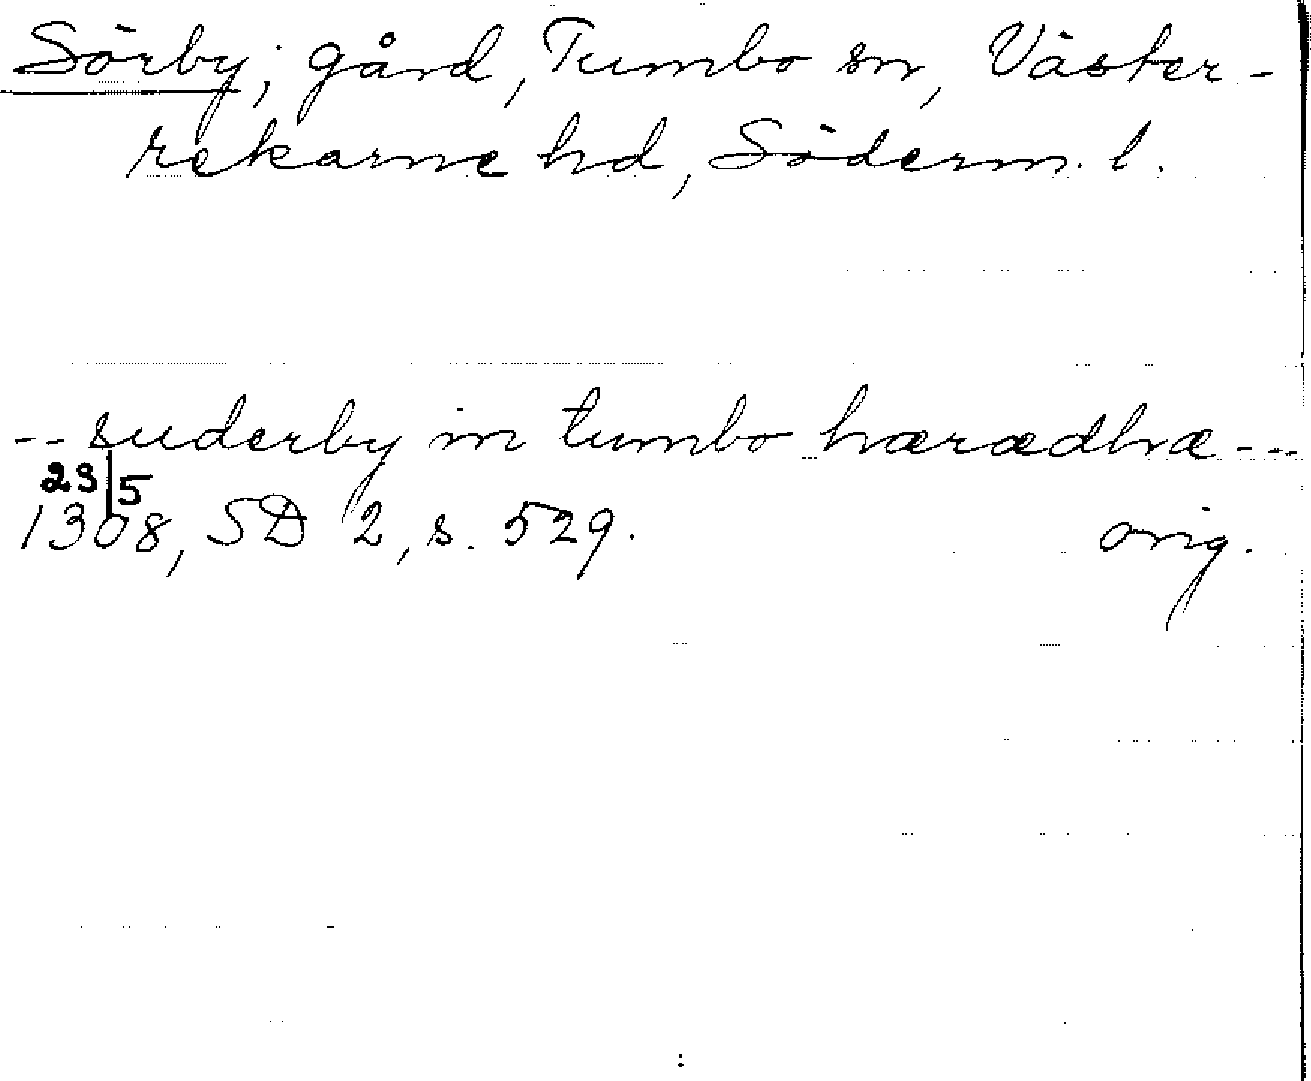 Sörby, gård, Tumbo sn, Väster-
rekarne hd, Söderm. l.
-- suderby in tumbo hærædhæ ---
23/5
1308, SD 2, s. 529. orig.